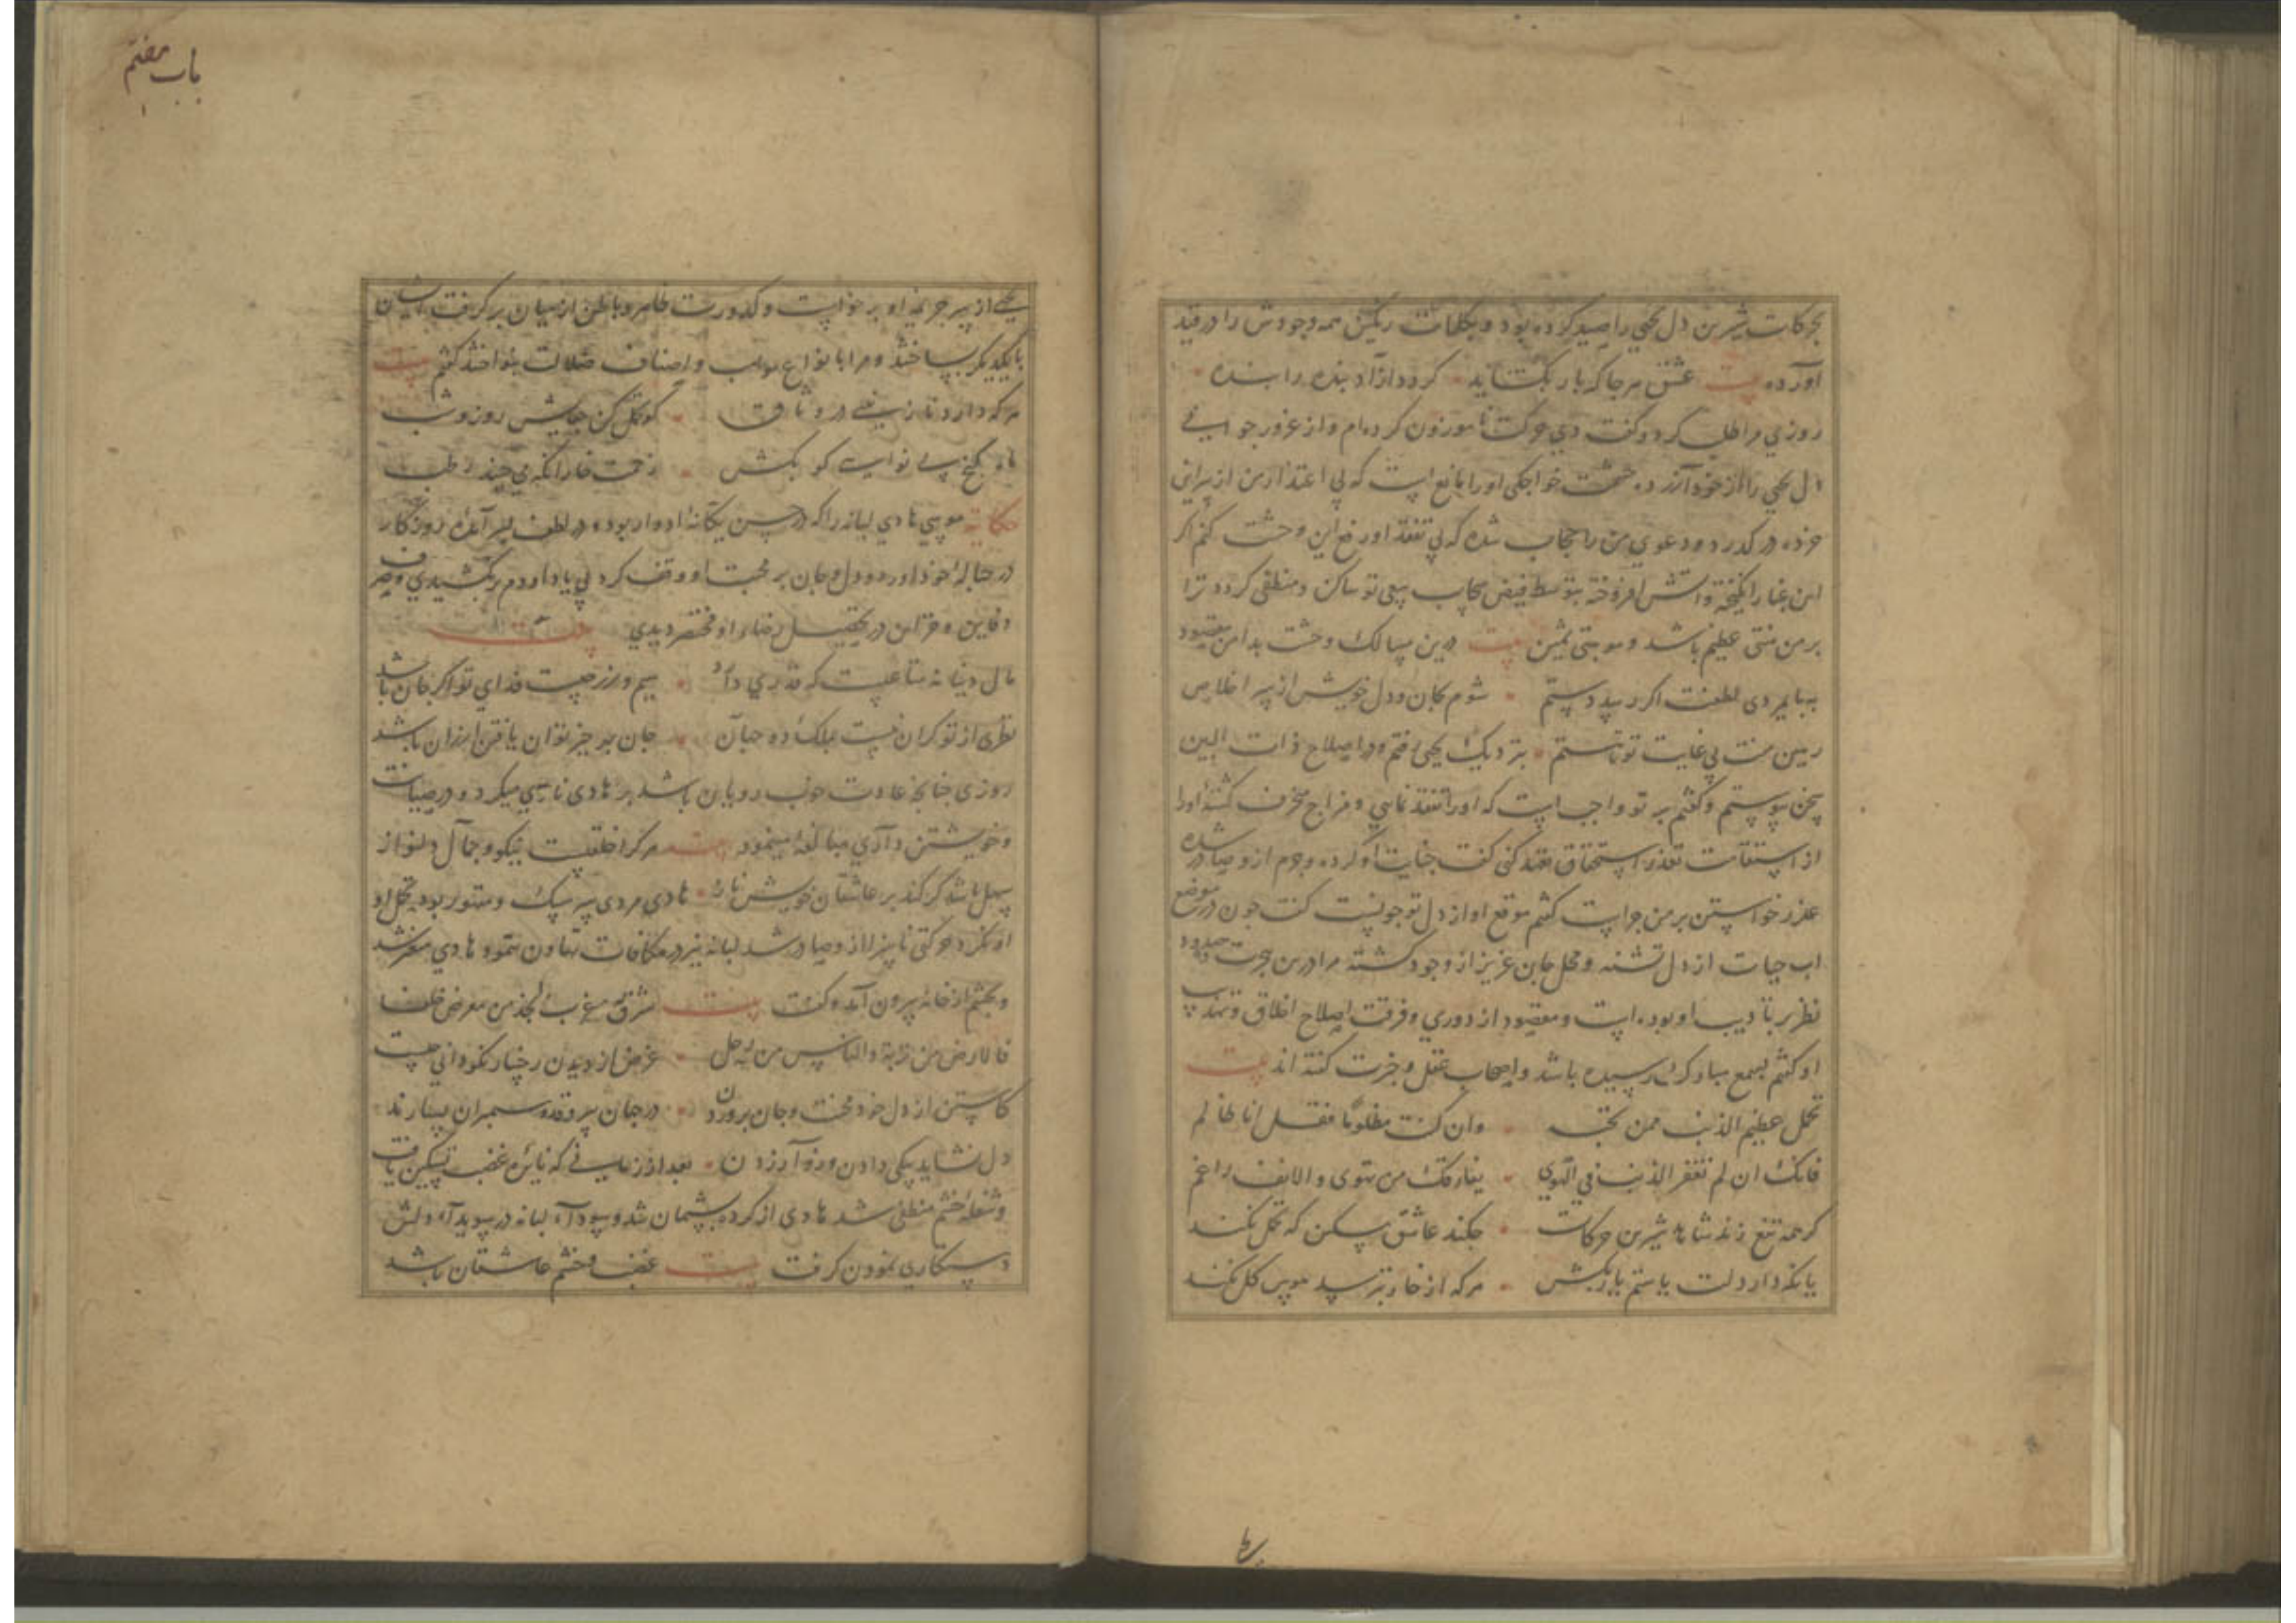 بحرکات شیرین دل یحیی را صید کرده بود و بکلمات رنگین همه وجودش را در قید
آورده بیت عشق هر جا که بار بکشاید کردد آزاد بنده را بنده
روزی مرا طلب کرد و کفت دی حرکت نا موزون کرده‌ام و از غرور جوانی
دل یحیی را از خود آزرده حشمت خواجکی او را مانع است که بی اعتذار من از سر این
خرده در کذرد و دعوی من را حجاب شده که بی تفقد او رفع این وحشت کنم اکر
این غبار انکیخته و آتش افروخته بتوسط فیض سحاب سعی تو ساکن و منطفی کردد ترا
بر من منتی عظیم باشد و موهبتی ثمین بیت درین مسالک وحشت بدامن مقصود
بپایمردی لطفت اکر رسد دستم شوم بجان و دل خویش از سر اخلاص
رهین منت بی غایت تو تا هستم بنزدیک یحیی رفتم و در اصلاح ذات البین
سخن پیوستم و کفتم بر تو واجب است که او را تفقد نمایی و مزاج منحرف کشته او را
از استقامت تعذر استحقاق تعهد کنی کفت جنایت او کرده و جرم ازو صادر شده
عذر خواستن بر من چراست کفتم موقع او از دل تو چونست کفت چون در موضع
اب حیات از دل تشنه و محل جان عزیز از وجود کشته مرا درین هجرت و صدود
نظر بر تادیب او بوده است و مقصود از دوری و فرقت اصلاح اخلاق و تهذیب
او کفتم بسمع مبارکت رسیده باشد و اصحاب عقل و خبرت کفته اند بیت
تحمل عظیم الذنب ممن تحبه وان کنت مظلوما فقل انا ظالم
فانک ان لم تغفر الذنب فی الهوی یفارقک من تهوی والانف راغم
کر همه تیغ زند شاهد شیرین حرکات چکند عاشق مسکن که تحمل نکند
یا نکه دار دلت یا ستم یار بکش هر که از خار بترسد هوس کل نکند
یحیی از سر جریمه او برخواست و کدورت ظاهر و باطن از میان برکرفت ایشان
با یکدیکر بساختند و مرا با نواع مواهب و اصناف صلات بنواختند کفتم بیت
هر که دارد نازنینی در وثاق کو تحمل کن جفایش روز و شب
بار کنج بی نوایت کو بکش زحمت خار انکه می چیند رطب
حکایة موسی هادی لبانه را که در حسن یکانهٔ ادوار بوده و در لطف سر آمده روزکار
در حبالهٔ خود آورد و دل و جان بر محبت او وقف کرد بی یاد او دم برنکشیدی و صرف
دفاین و خزاین در تحصیل رضاء او مختصر دیدی بیت
مال دنیا نه متاعیست که قدری دارد سیم و زر چیست فدای تو اکر جان باشد
نظری از تو کران نیست بملک دو جهان جان بهر چیز توان یافتن ارزان باشد
روزی چنانچه عادت خوب رویان باشد بر هادی نازی میکرد و در صیانت
و خویشتن داری مبالغه مینمود بیت هر کرا خلقیست نیکو و جمال دلنواز
سهل باشد کر کند بر عاشقان خویش ناز هادی مردی سبک و متهور بود تحمل او
او نکرد حرکتی ناسزا ازو صادر شد لبانه نیز در مکافات تهاون ننمود هادی متغیر شد
و بخشم از خانه بیرون آمد و کفت بیت شرق و غرب تجد من معرض خلفا
فالارض من تربة والناس من رجل غرض از دیدن رخسار نکو دانی چیست
کاستن از دل خود محنت و جان پروردن در جهان سرو قد و سمبران بسیارند
دل نشاید بیکی دادن و زو آزردن بعد از زمانی که نایره غضب تسکین یافت
و شعلهٔ خشم منطفی شد هادی از کرده پشیمان شد و سودآء لبانه در سویدآء دلش
دستکاری نمودن کرفت بیت غضب و خشم عاشقان باشد
باب هفتم